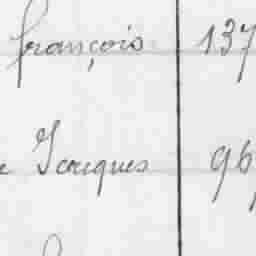 françois 137
Jacques 96